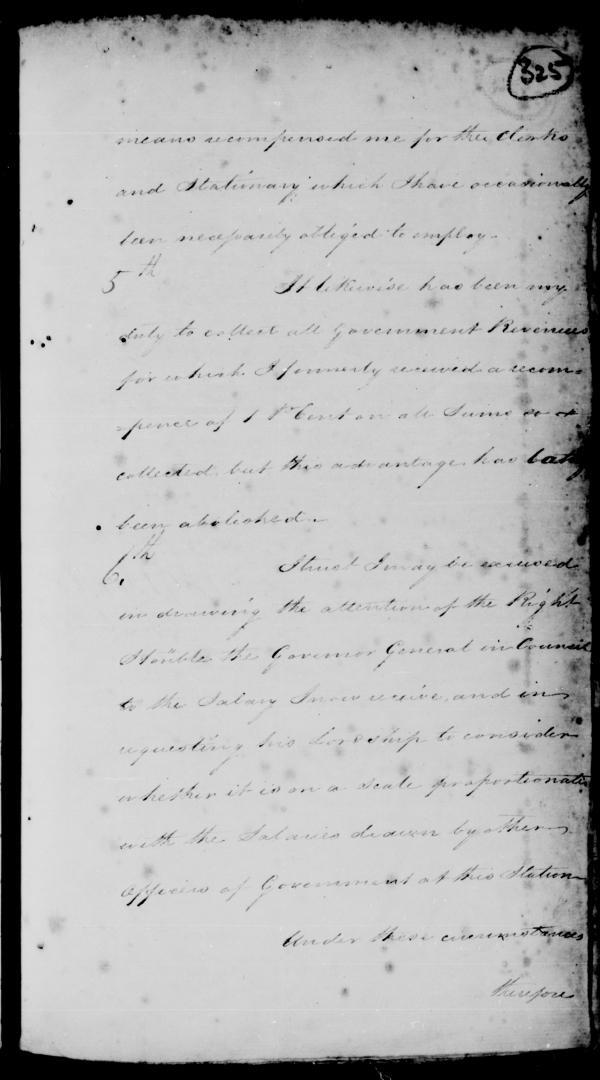 325
means recompensed me for the Clerks
and Stationary which I have occasionally
been necessarily obliged to employ.
5th It likewise has been my
duty to collect all Government Revenues
for which I formerly received a recom=
=pence of 1 Pr Cent on all Sums so
collected but this advantage has lately
been abolished.
6th I trust I may be excused
in drawing the attention of the Right
Honble the Governor General in Council
to the Salary I now receive, and in
requesting his Lordship to consider
whether it is on a scale proportionate
with the Salaries drawn by other
Officers of Government at this Station
Under these circumstances
therefore